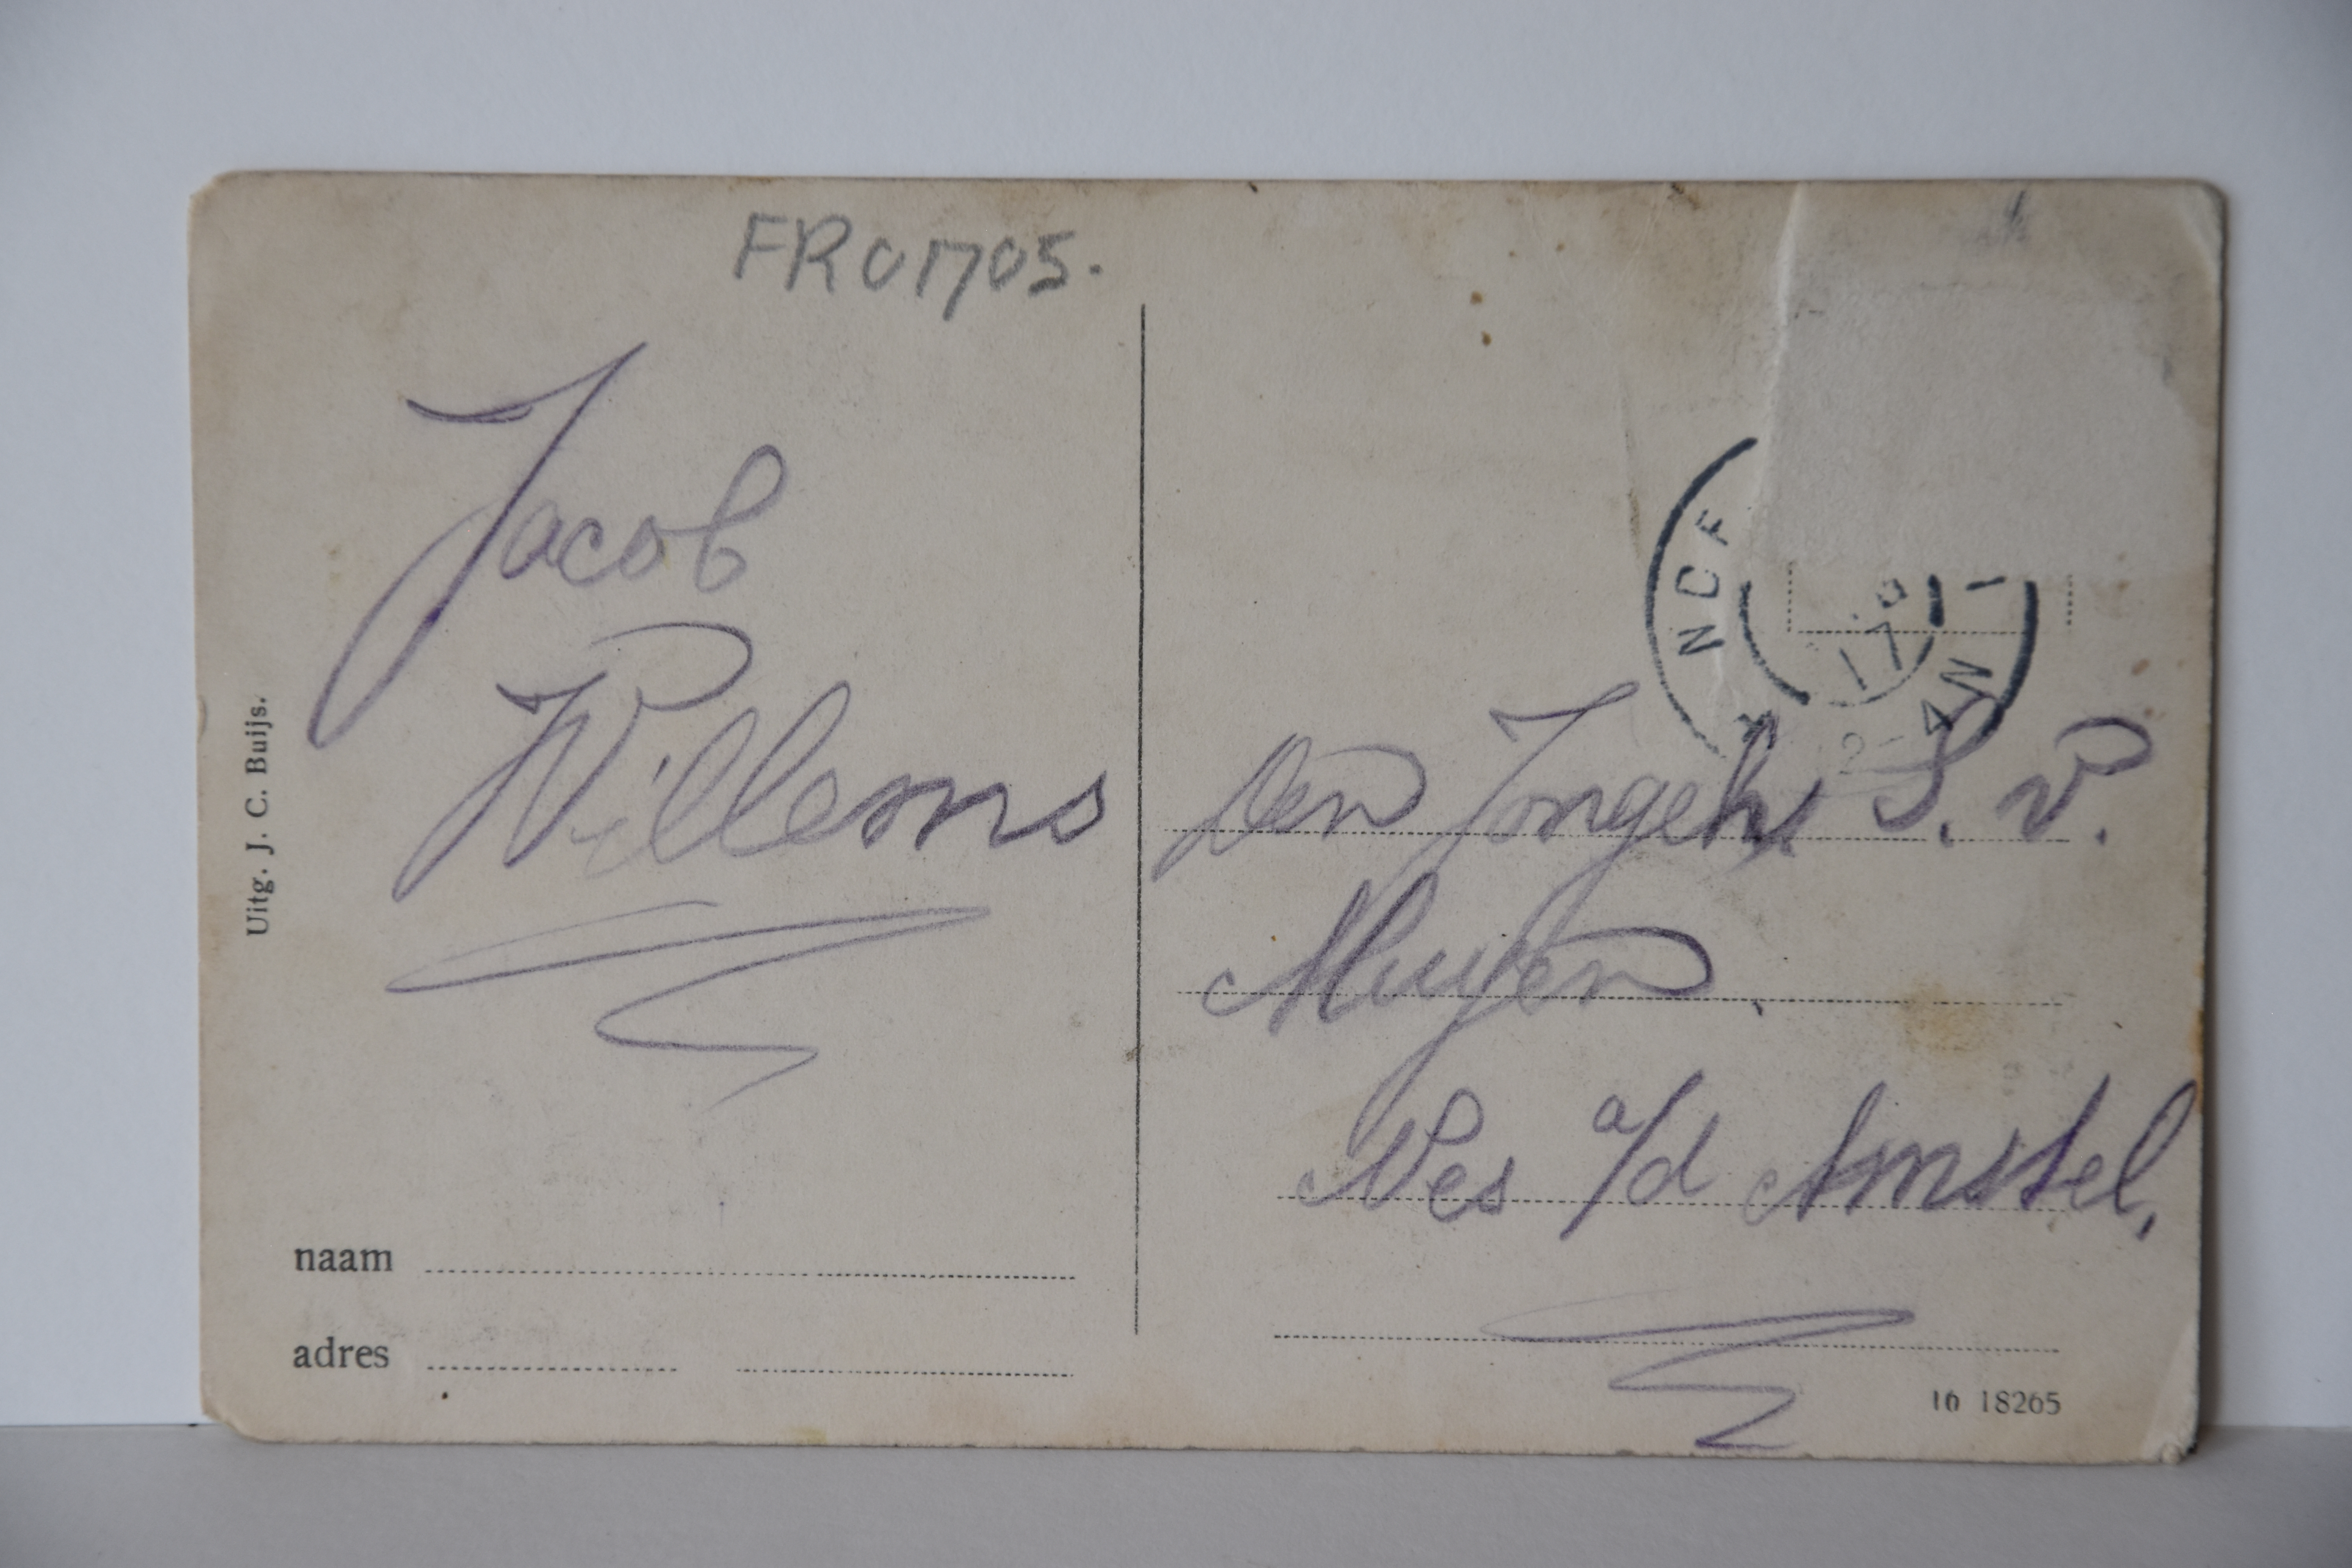 FR01705.
Jacob
Willems
Uitg. J. C. Buijs.
naam
adres
17
2-4N
Den Jongeh. S. v.
Muyen
Nes a/d Amstel.
16 18265